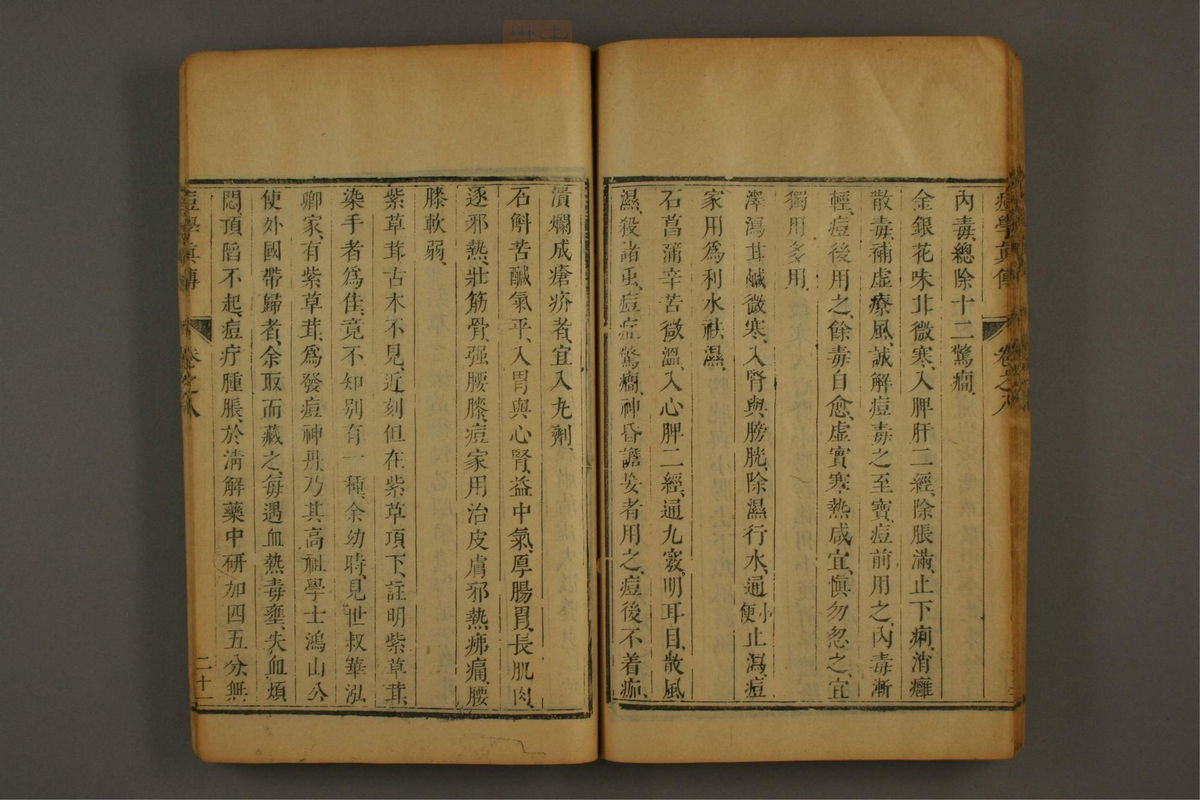 痘學眞傳 卷之八
內毒總除十二驚癎
金銀花味甘微寒入脾肝二經除脹滿止下痢消癰
散毒補虛療風誠解痘毒之至寶痘前用之內毒漸
輕痘後用之餘毒自愈虛實寒熱咸宜愼勿忽之宜
獨用多用
澤瀉甘鹹微寒入腎與膀胱除濕行水通小便止瀉痘
家用爲利水祛濕
石菖蒲辛苦微溫入心脾二經通九竅明耳目散風
濕殺諸虫痘症驚癎神昏譫妄者用之痘後不着痂
潰爛成瘡疥者宜入丸劑
石斛苦鹹氣平入胃與心腎益中氣厚腸胃長肌肉
逐邪熱壯筋骨强腰膝痘家用治皮膚邪熱疿痛腰
膝軟弱
紫草茸古本不見近刻但在紫草項下註明紫草茸
染手者爲佳竟不知別有一種余幼時見世叔華泓
卿家有紫草茸爲發痘神丹乃其高祖學士鴻山公
使外國帶歸者余取而藏之每遇血熱毒壅失血煩
悶頂陷不起痘疔腫脹於淸解藥中硏加四五分無
痘學眞傳 卷之八 二十一